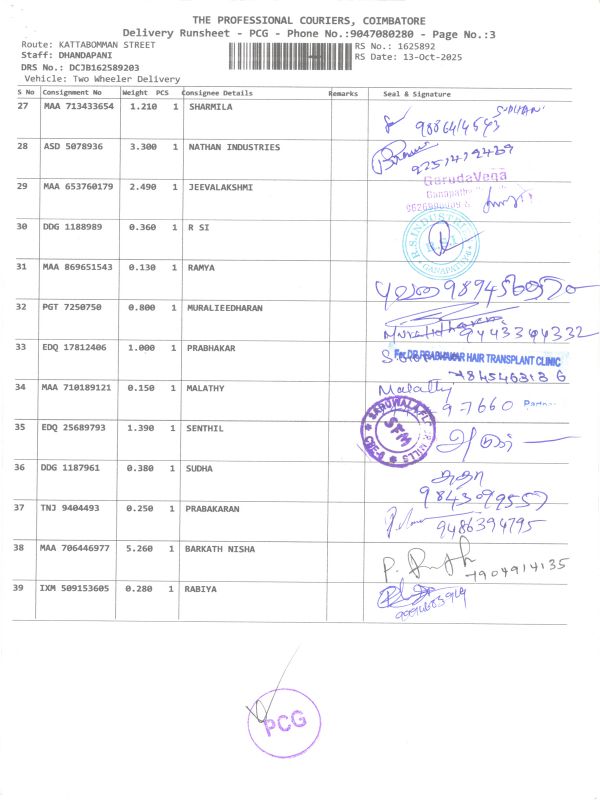 THE PROFESSIONAL COURIERS, COIMBATORE
Delivery Runsheet - PCG - Phone No.:9047080280 - Page No.:3
Route: KATTABOMMAN STREET
RS No.: 1625892
Staff: DHANDAPANI
RS Date: 13-Oct-2025
DRS No.: DCJB162589203
Vehicle: Two Wheeler Delivery
S No Consignment No Weight PCS Consignee Details Remarks Seal & Signature
27 MAA 713433654 1.210 1 SHARMILA
28 ASD 5078936 3.300 1 NATHAN INDUSTRIES
GarudaVega
Ganapathy
29 MAA 653760179 2.490 1 JEEVALAKSHMI
R.S.INDUSTRI
GANAPATHY
30 DDG 1188989 0.360 1 R SI
31 MAA 869651543 0.130 1 RAMYA
32 PGT 7250750 0.800 1 MURALIEEDHARAN
Muralidharan
9443394332
33 EDQ 17812406 1.000 1 PRABHAKAR
For DR.PRABHAKAR HAIR TRANSPLANT CLINIC
34 MAA 710189121 0.150 1 MALATHY
Malathy
97660
Partner
35 EDQ 25689793 1.390 1 SENTHIL
SFM
CBE-6
36 DDG 1187961 0.380 1 SUDHA
சுதா
9843099557
37 TNJ 9404493 0.250 1 PRABAKARAN
9486394795
38 MAA 706446977 5.260 1 BARKATH NISHA
7904914135
39 IXM 509153605 0.280 1 RABIYA
PCG